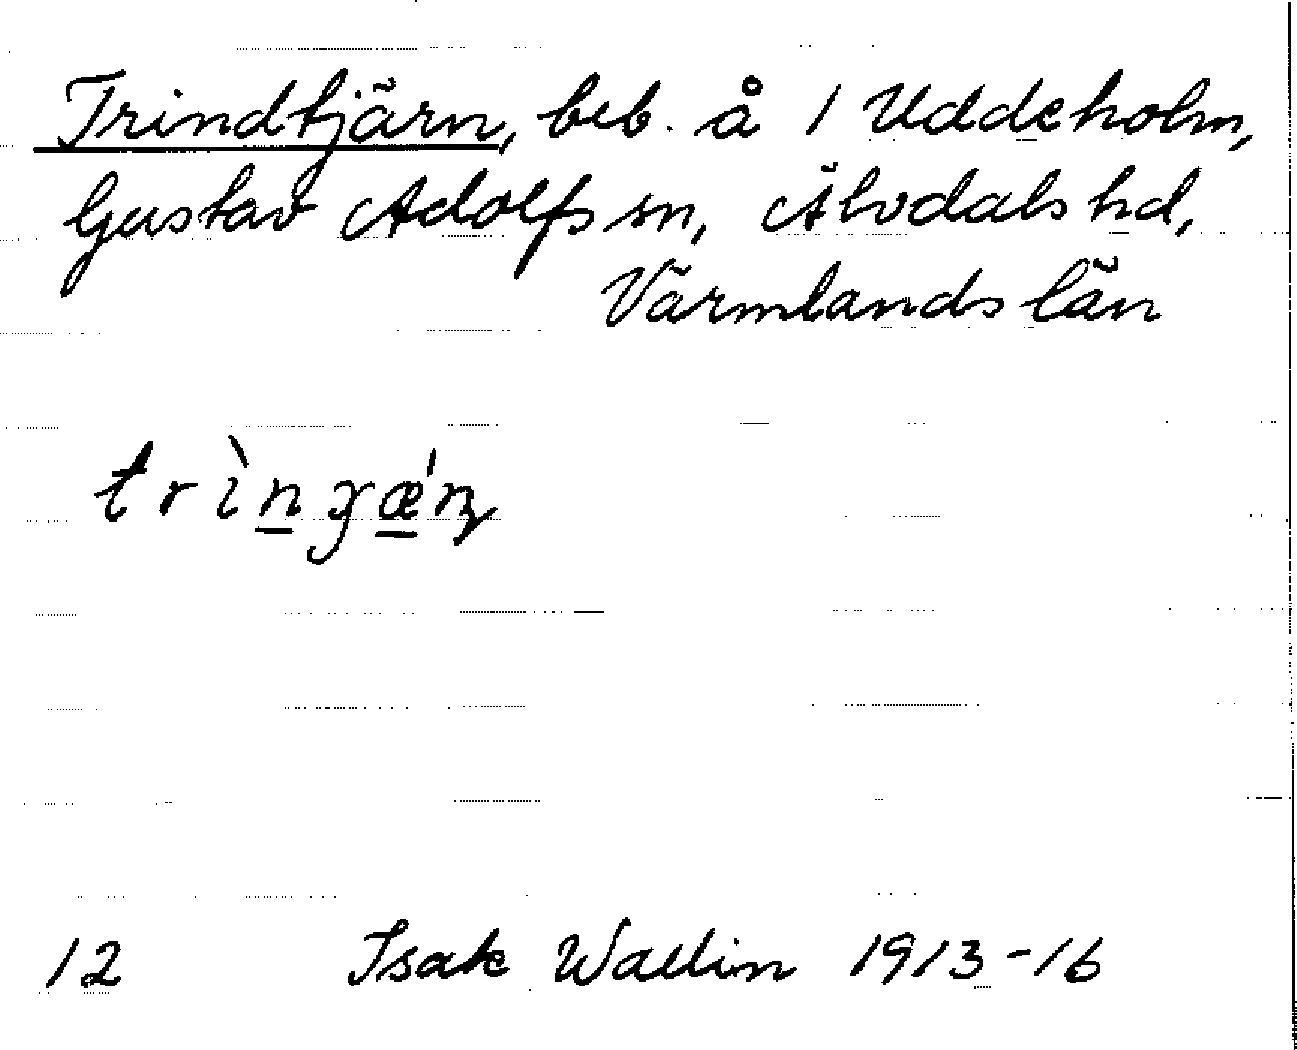 Trindtjärn, beb. å 1 Uddeholm,
Gustav Adolfs sn, Älvdals hd,
Värmlands län
trìnɣǽɳ
12 Isak Wallin 1913-16